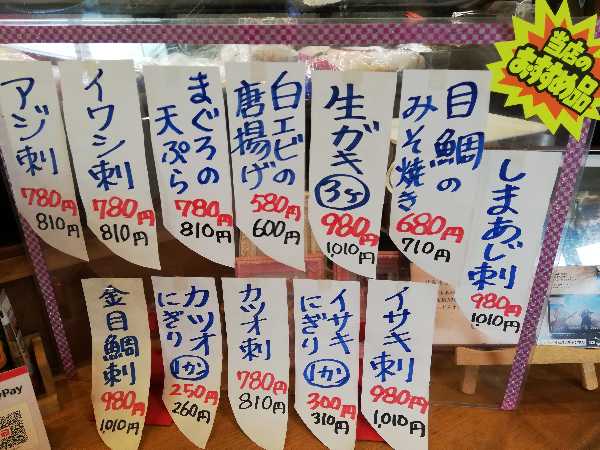 当店の
おすすめ品
しまあじ刺
980円
1,010円
目鯛の
みそ焼き
680円
710円
生ガキ
3ヶ
980円
1,010円
白エビの
唐揚げ
580円
600円
まぐろの
天ぷら
780円
810円
イワシ刺
780円
810円
アジ刺
780円
810円
イサキ刺
980円
1,010円
イサキ
にぎり
1カン
300円
310円
カツオ刺
780円
810円
カツオ
にぎり
1カン
250円
260円
金目鯛刺
980円
1,010円
Pay